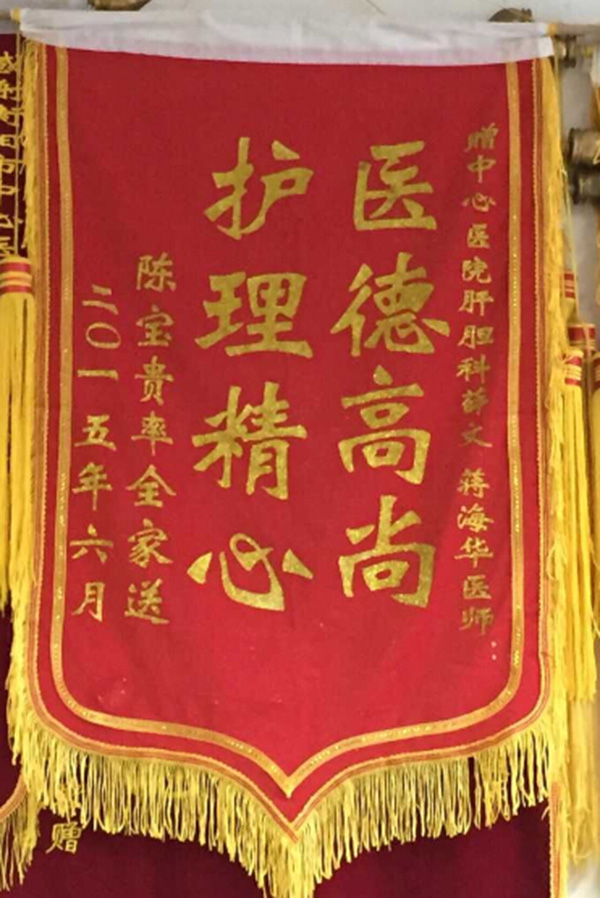 赠中心医院肝胆科薛文 蒋海华医师：
医德高尚
护理精心
陈宝贵率全家送
二〇一五年六月
赠